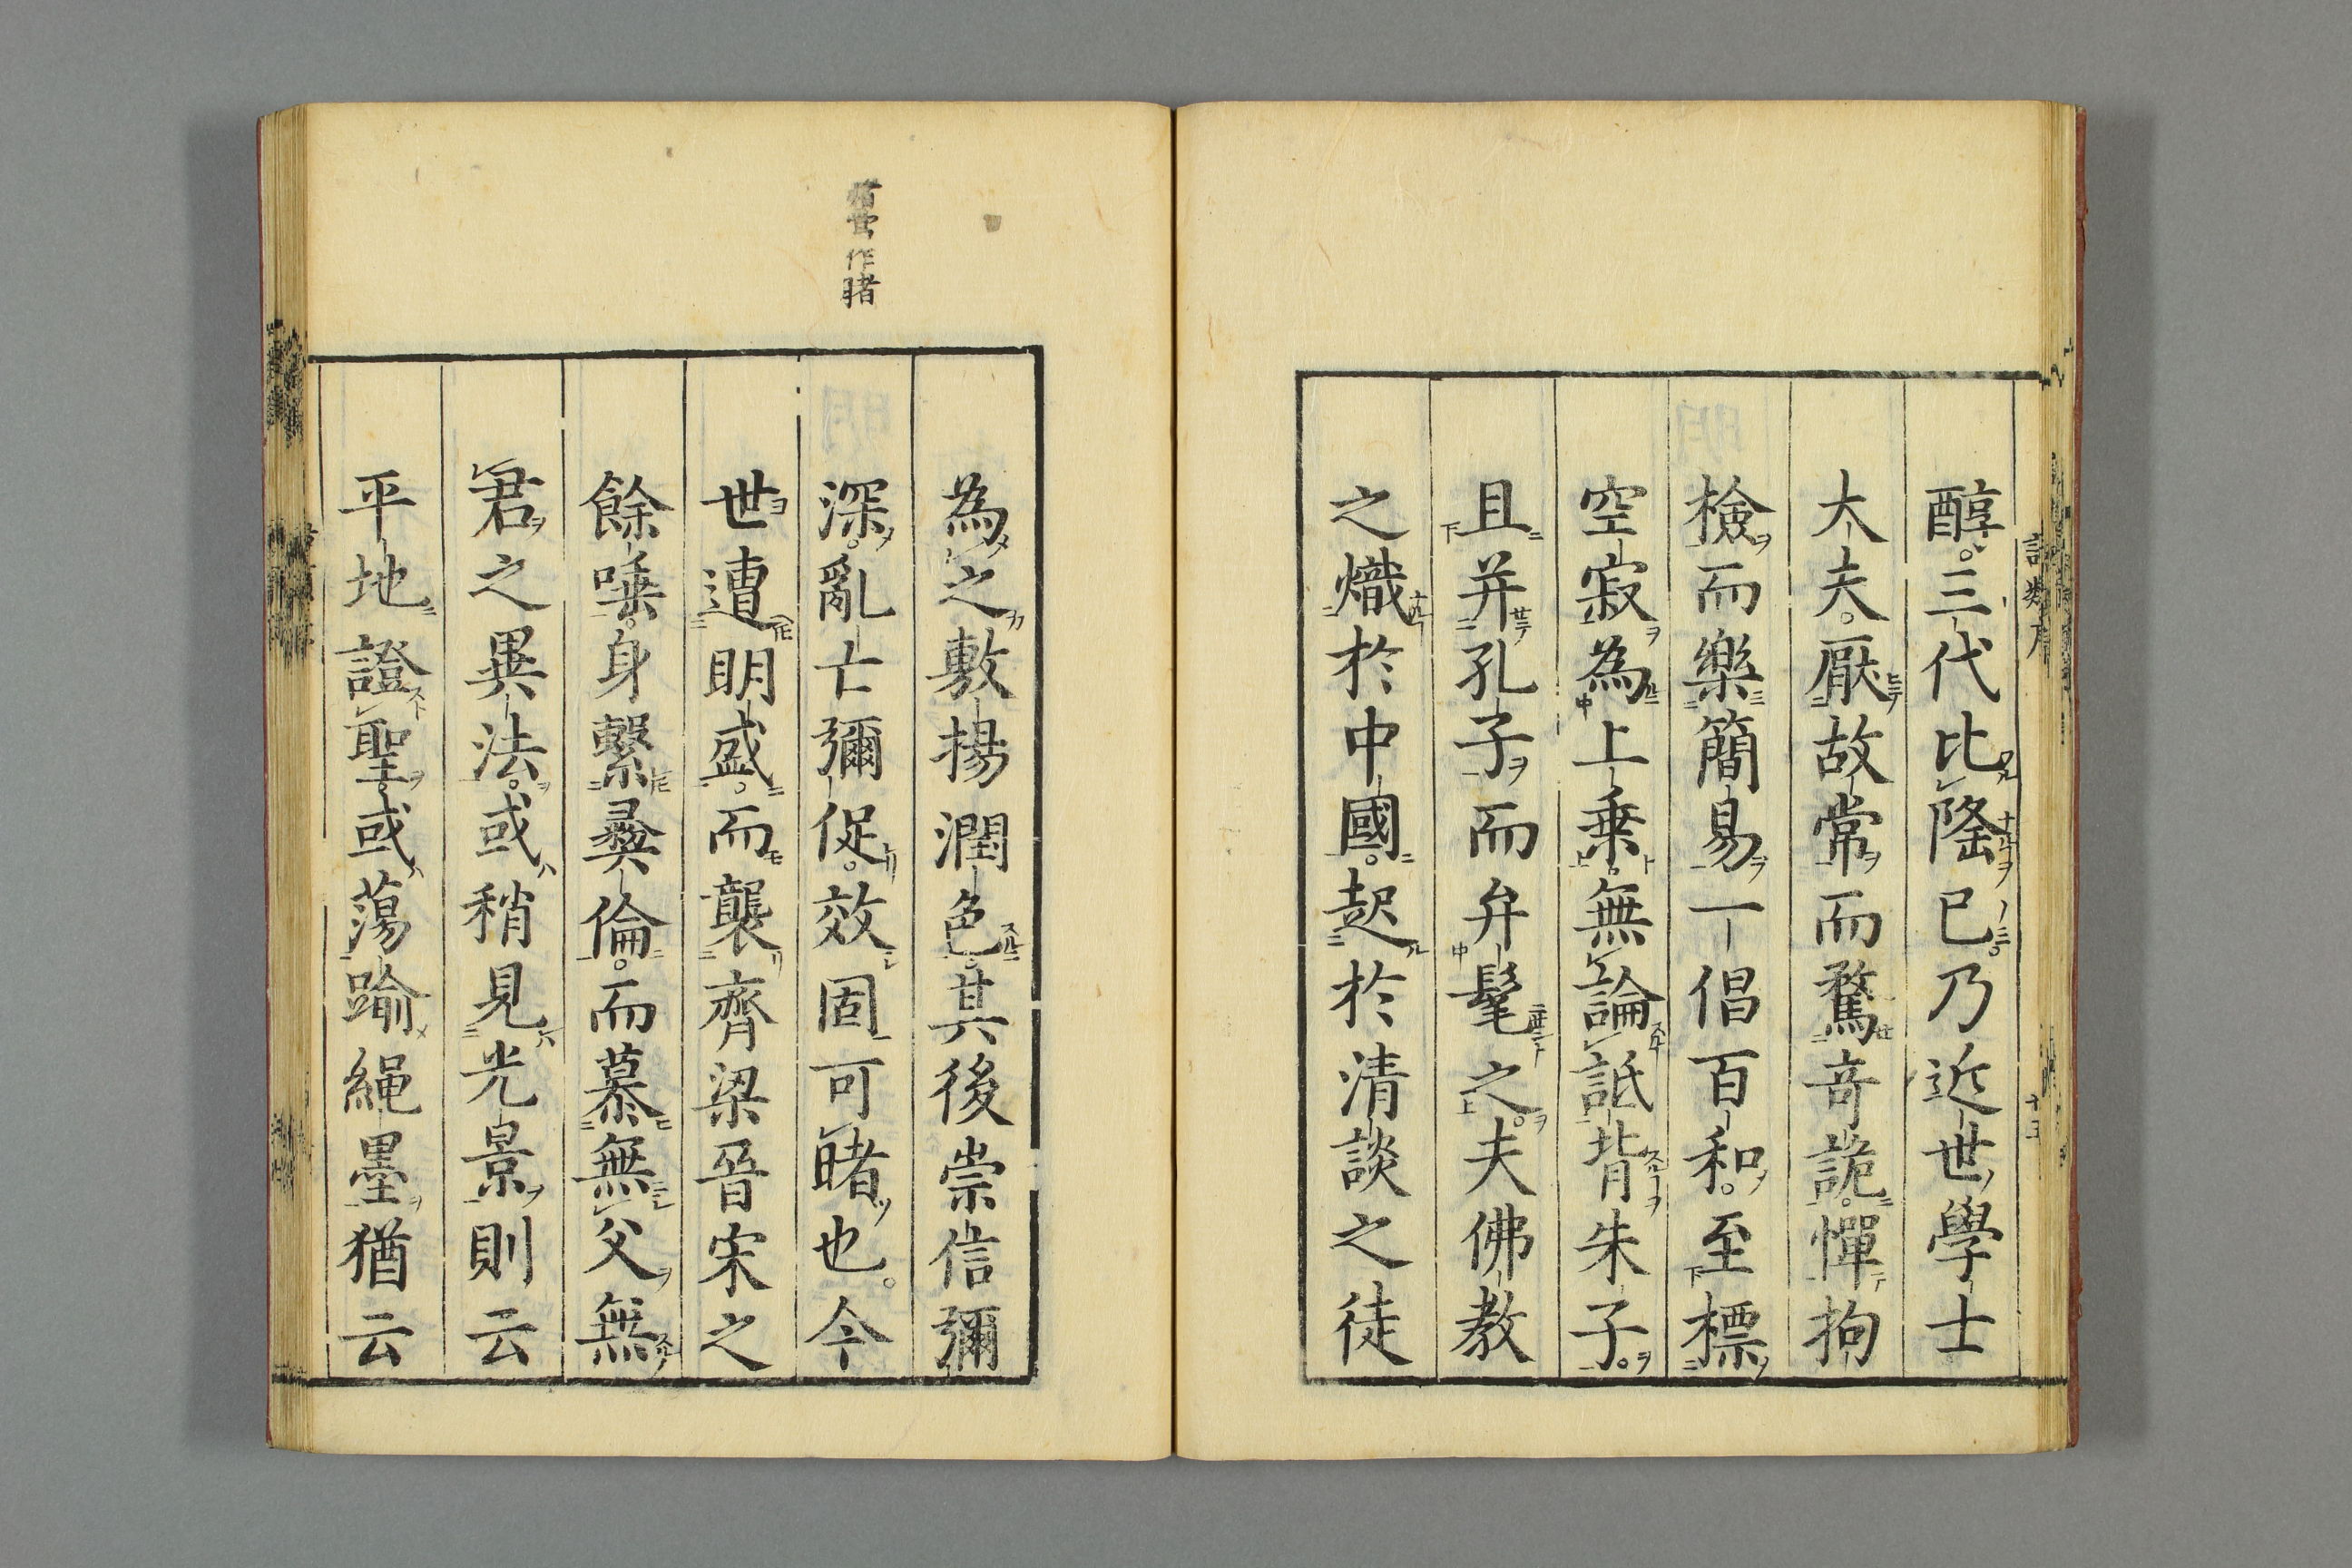 醇三代比隆已乃近世學士
大夫厭故常而騖竒詭憚拘
檢而樂簡易一倡百和至標
空寂為上乗無論詆背朱子
且并孔子而弁髦之夫佛教
之熾於中國起於清談之徒
為之敷揚潤色其後崇信彌
深亂亡彌促效固可睹也今
世遭明盛而襲齊梁晉宋之
餘唾身繫彛倫而慕無父無
君之異法或稍見光景則云
平地證聖或蕩踰繩墨猶云
作睹